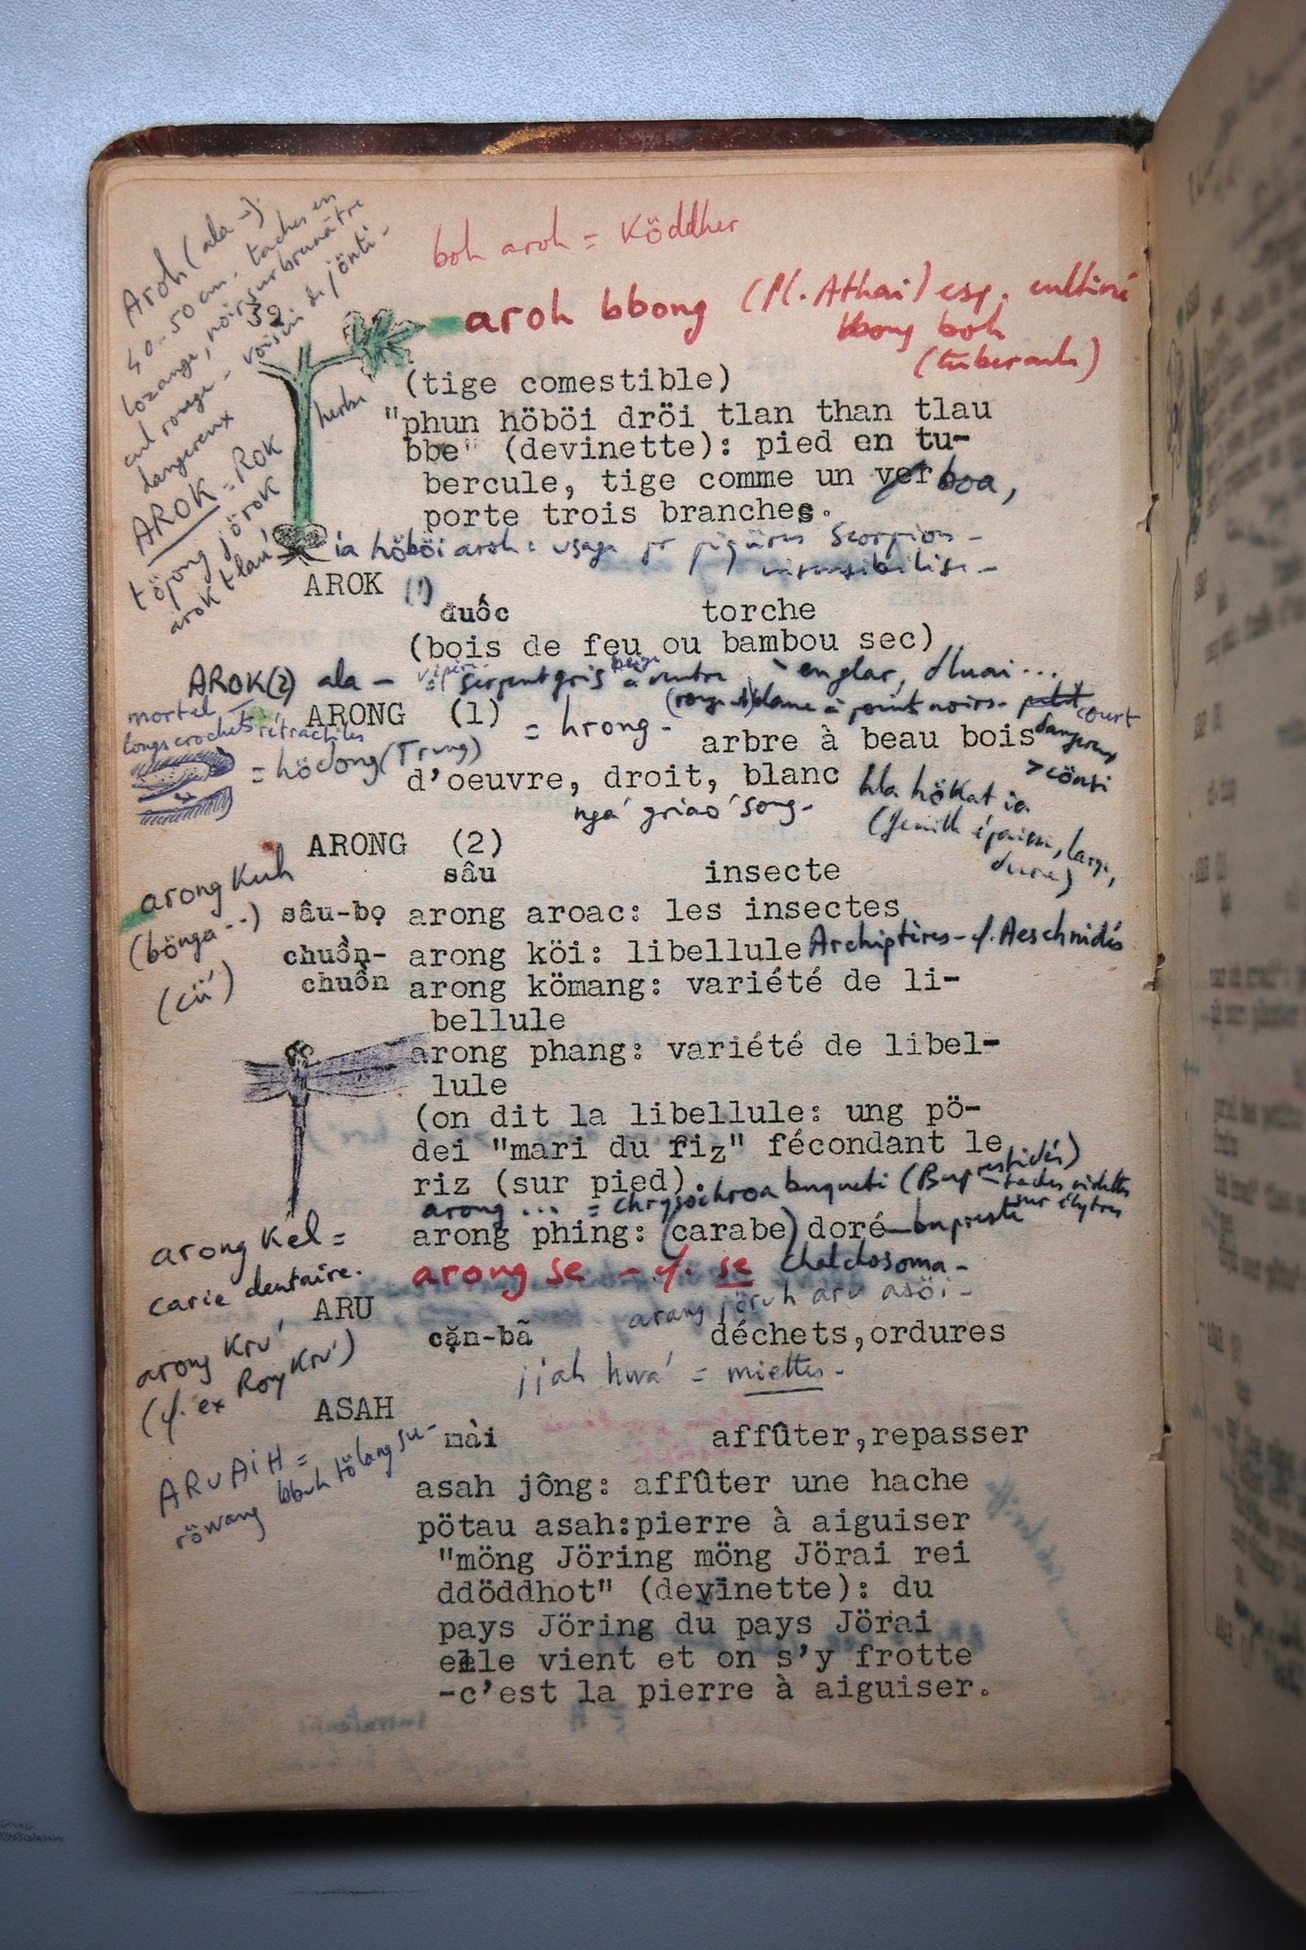 Aroh (ala -).
40-50 cm. taches en
lozange, noir sur brunâtre
cul rouge - voisin de jönti -
dangereux
AROK = ROK
töpong jörok
arok tlau
32
herbe
boh aroh = Köddher
aroh bbong (Pl. Athai) esp. cultivé
bbong boh
(tubercule)
(tige comestible)
"phun höböi dröi tlan than tlau
bbe" (devinette): pied en tu-
bercule, tige comme un ver boa,
porte trois branches.
ia höböi aroh = usage pr piqûres Scorpion -
insensibilise -
AROK (1)
đuốc torche
(bois de feu ou bambou sec)
AROK(2) ala - vipère : serpent gris beige à ventre
englar, dluai...
(rouge) dame à points noirs - petit court
dangereux
> cönti
mortel
longs crochets rétractiles
ARONG (1) = hrong -
= hödong (Trung)
arbre à beau bois
d'oeuvre, droit, blanc
ngă griao song -
hla hökat ia
(feuille épaisse, large,
dure)
ARONG (2)
sâu insecte
arong Kuh
(bönga --)
(cü)
sâu-bọ arong aroac: les insectes
chuồn- arong köi: libellule Archiptères - cf. Aeschnidés
chuồn arong kömang: variété de li-
bellule
arong phang: variété de libel-
lule
(on dit la libellule: ung pö-
dei "mari du riz" fécondant le
riz (sur pied).
arong ... = chrysochroa buqueti (Buprestidés)
- taches violettes
sur élytres
arong phing: (carabe) doré - bupreste
arong se - cf. se chalchosoma -
arong Kel =
carie dentaire.
arang jöruh aru asöi -
ARU
cặn-bã déchets,ordures
arong Kru'
(cf. ex Roy Kru')
jjah hwa' = miettes -
ASAH
mài affûter,repasser
ARUAiH =
röwang bbuh tölang su -
asah jông: affûter une hache
pötau asah:pierre à aiguiser
"möng Jöring möng Jörai rei
ddöddhot" (devinette): du
pays Jöring du pays Jörai
elle vient et on s'y frotte
-c'est la pierre à aiguiser.